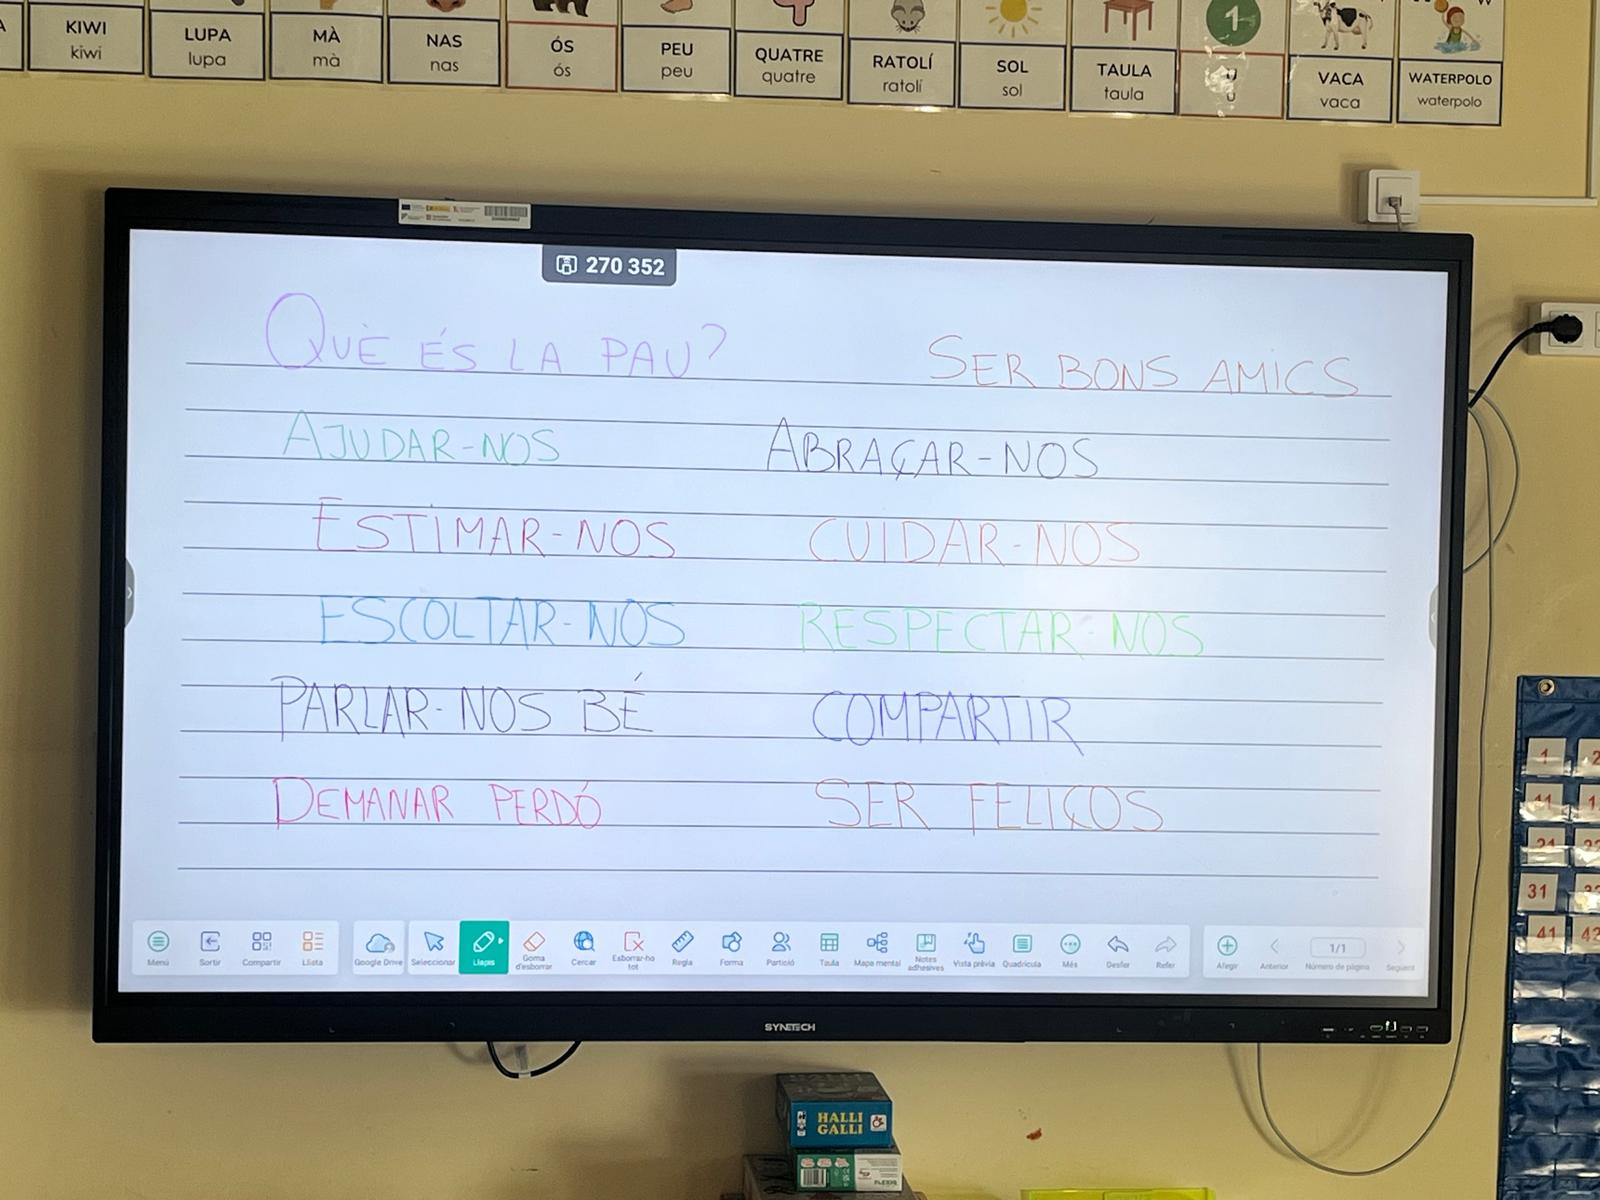 KIWI
kiwi
LUPA
lupa
MÀ
mà
NAS
nas
ÓS
ós
PEU
peu
QUATRE
quatre
RATOLÍ
ratolí
SOL
sol
TAULA
taula
1
U
u
VACA
vaca
WATERPOLO
waterpolo
270 352
QUÈ ÉS LA PAU?
SER BONS AMICS
AJUDAR-NOS
ABRAÇAR-NOS
ESTIMAR-NOS
CUIDAR-NOS
ESCOLTAR-NOS
RESPECTAR-NOS
PARLAR-NOS BÉ
COMPARTIR
DEMANAR PERDÓ
SER FELIÇOS
Menú
Sortir
Compartir
Llista
Google Drive
Seleccionar
Llapis
Goma d'esborrar
Cercar
Esborrar-ho tot
Regla
Forma
Partició
Taula
Mapa mental
Notes adhesives
Vista prèvia
Quadrícula
Més
Desfer
Refer
Afegir
Anterior
1/1
Número de pàgina
Següent
SYNETECH
HALLI
GALLI
1
2
11
21
22
31
41
42